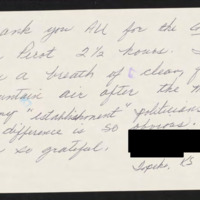 ank you All for the
Perot 2½ hours.
a breath of clean,
untain air after the
ny "establishment" politicians
difference is so
so grateful.
Topeka, KS